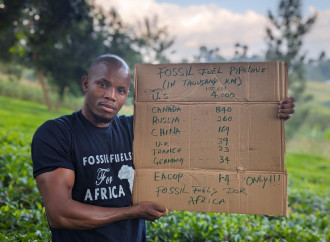 FOSSIL FUEL PIPELINE
(IN THOUSAND KM)
U.S 4,000
CANADA 840
RUSSIA 260
CHINA 109
U.K 39
FRANCE 23
GERMANY 34
EACOP 1.4 ONLY!!!
FOSSIL FUELS FOR
AFRICA
FOSSIL FUELS
For
AFRICA